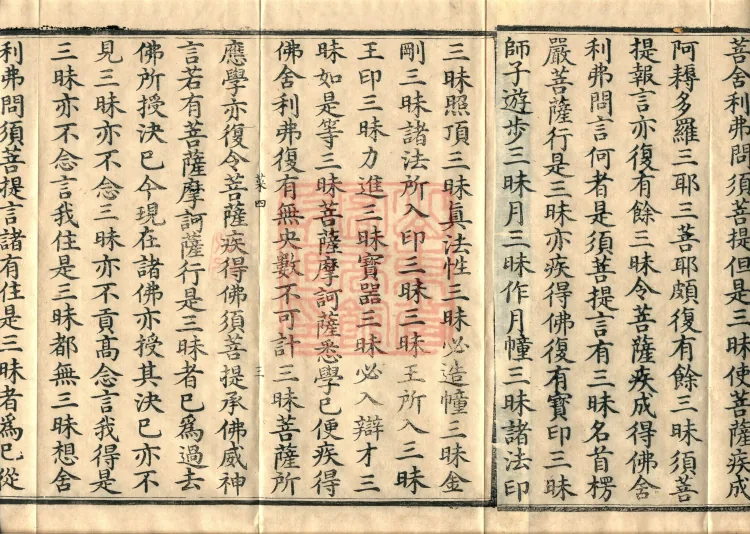 菩舍利弗問須菩提但是三昧使菩薩疾成
阿耨多羅三耶三菩耶頗復有餘三昧須菩
提報言亦復有餘三昧令菩薩疾成得佛舍
利弗問言何者是須菩提言有三昧名首楞
嚴菩薩行是三昧亦疾得佛復有寶印三昧
師子遊步三昧月三昧作月幢三昧諸法印
三昧照頂三昧真法性三昧必造幢三昧金
剛三昧諸法所入印三昧三昧王所入三昧
王印三昧力進三昧寶器三昧必入辯才三
昧如是等三昧菩薩摩訶薩悉學已便疾得
佛舍利弗復有無央數不可計三昧菩薩所
菜四
三
應學亦復令菩薩疾得佛須菩提承佛威神
言若有菩薩摩訶薩行是三昧者已為過去
佛所授決已今現在諸佛亦授其決已亦不
見三昧亦不念三昧亦不貢高念言我得是
三昧亦不念言我住是三昧都無三昧想舍
利弗問須菩提言諸有住是三昧者為已從